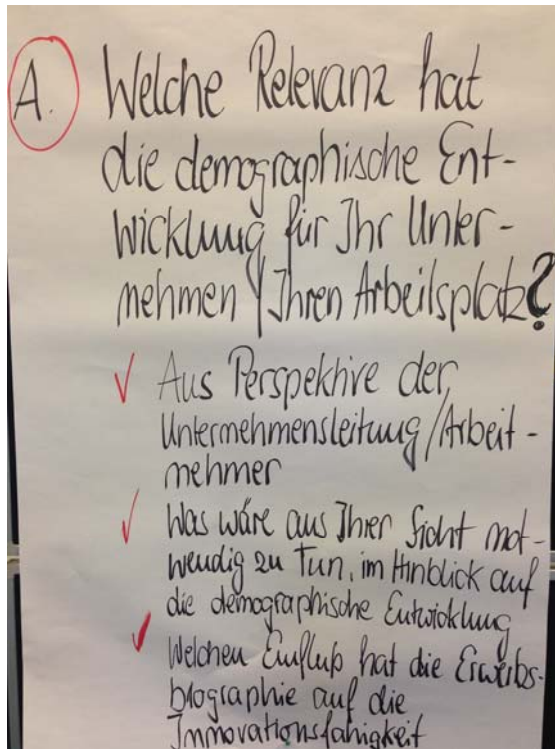 A. Welche Relevanz hat
die demographische Ent-
wicklung für Ihr Unter-
nehmen / Ihren Arbeitsplatz?
✓ Aus Perspektive der
Unternehmensleitung/Arbeit-
nehmer
✓ Was wäre aus Ihrer Sicht not-
wendig zu Tun, im Hinblick auf
die demographische Entwicklung
✓ Welchen Einfluß hat die Erwerbs-
biographie auf die
Innovationsfähigkeit